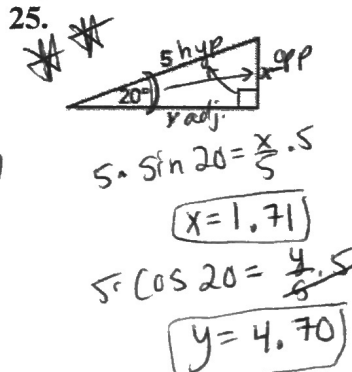 25.
5 hyp
x opp
20°
y adj.
5 · sin 20 = x/5 · 5
x = 1.71
5 · cos 20 = y/5 · 5
y = 4.70